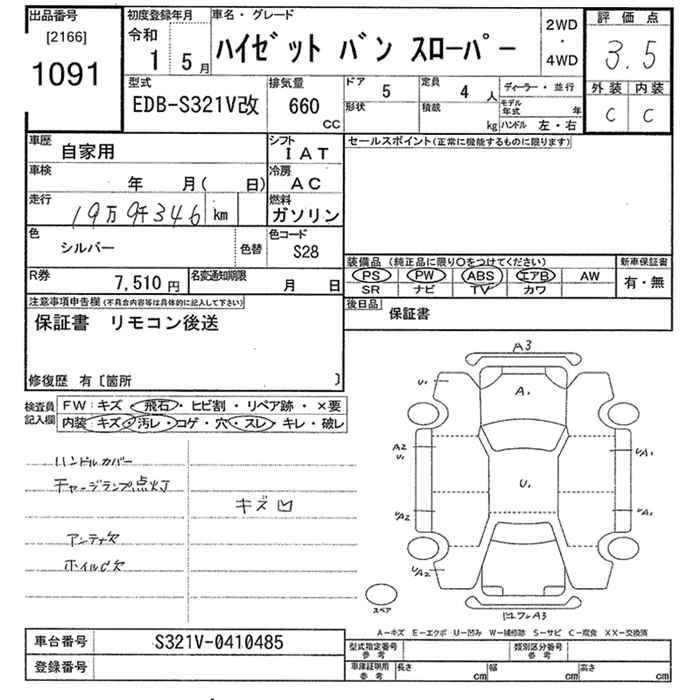 出品番号 初度登録年月 車名・グレード 評価点
[2166] 令和 ハイゼット バン スローパー 2WD ・ 4WD 3.5
1091 1 5月
外装 内装
型式 排気量 ドア 5 定員 4人 ディーラー・並行 C C
EDB-S321V改 660 CC 形状 積載 kg モデル年式 年
ハンドル 左・右
車歴 自家用 シフト IAT セールスポイント(正常に機能するものに限ります)
車検 年 月( 日) 冷房 AC
走行 19万9千346 km 燃料 ガソリン
色 シルバー 色替 色コード S28
装備品(純正品に限り○をつけてください) 新車保証書
R券 7,510円 名変通知期限 月 日 PS PW ABS エアB AW 有・無
SR ナビ TV カワ
注意事項申告欄(不具合内容等は具体的に記入して下さい) 後日品 保証書
保証書 リモコン後送
修復歴 有〔箇所 〕
検査員記入欄 FW:キズ・飛石・ヒビ割・リペア跡・×要
内装:キズ・汚レ・コゲ・穴・スレ・キレ・破レ
ハンドルカバー
チャージランプ点灯
キズ凹
アンテナ欠
ホイルC欠
A3
U1 A1
A2 U1 UA1
U1
UA2 UA1
UA2
A3
スペア
A-キズ E-エクボ U-凹み W-補修跡 S-サビ C-腐食 XX-交換済
車台番号 S321V-0410485 型式指定番号 参考 類別区分番号 参考
登録番号 車庫証明用 参考 長さ cm 幅 cm 高さ cm